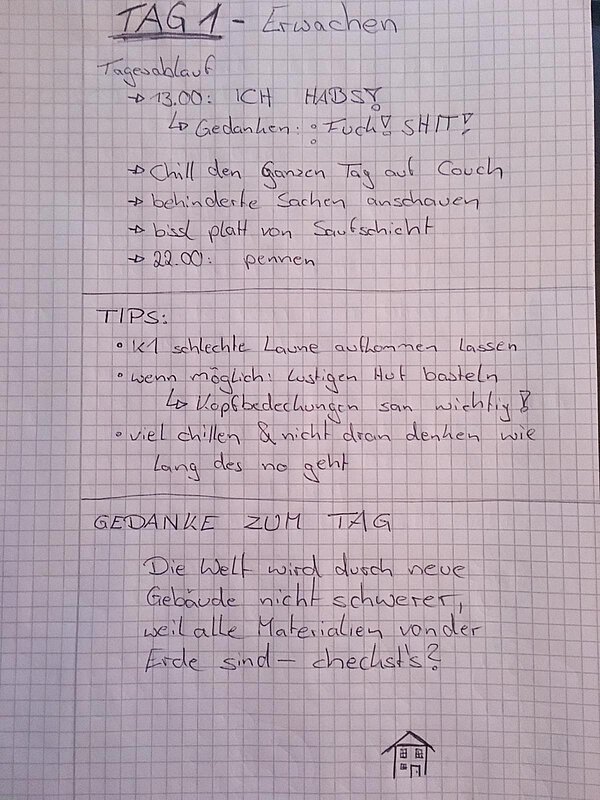 TAG 1 - Erwachen
Tagesablauf
→ 13.00: ICH HABS!
↳ Gedanken: : Fuck! SHIT!
→ Chill den Ganzen Tag auf Couch
→ behinderte Sachen anschauen
→ bissl platt von Saufschicht
→ 22.00: pennen
TIPS:
• K1 schlechte Laune aufkommen lassen
• wenn möglich: lustigen Hut basteln
↳ Kopfbedeckungen san wichtig!
• viel chillen & nicht dran denken wie
lang des no geht
GEDANKE ZUM TAG
Die Welt wird durch neue
Gebäude nicht schwerer,
weil alle Materialien von der
Erde sind — checkst's?